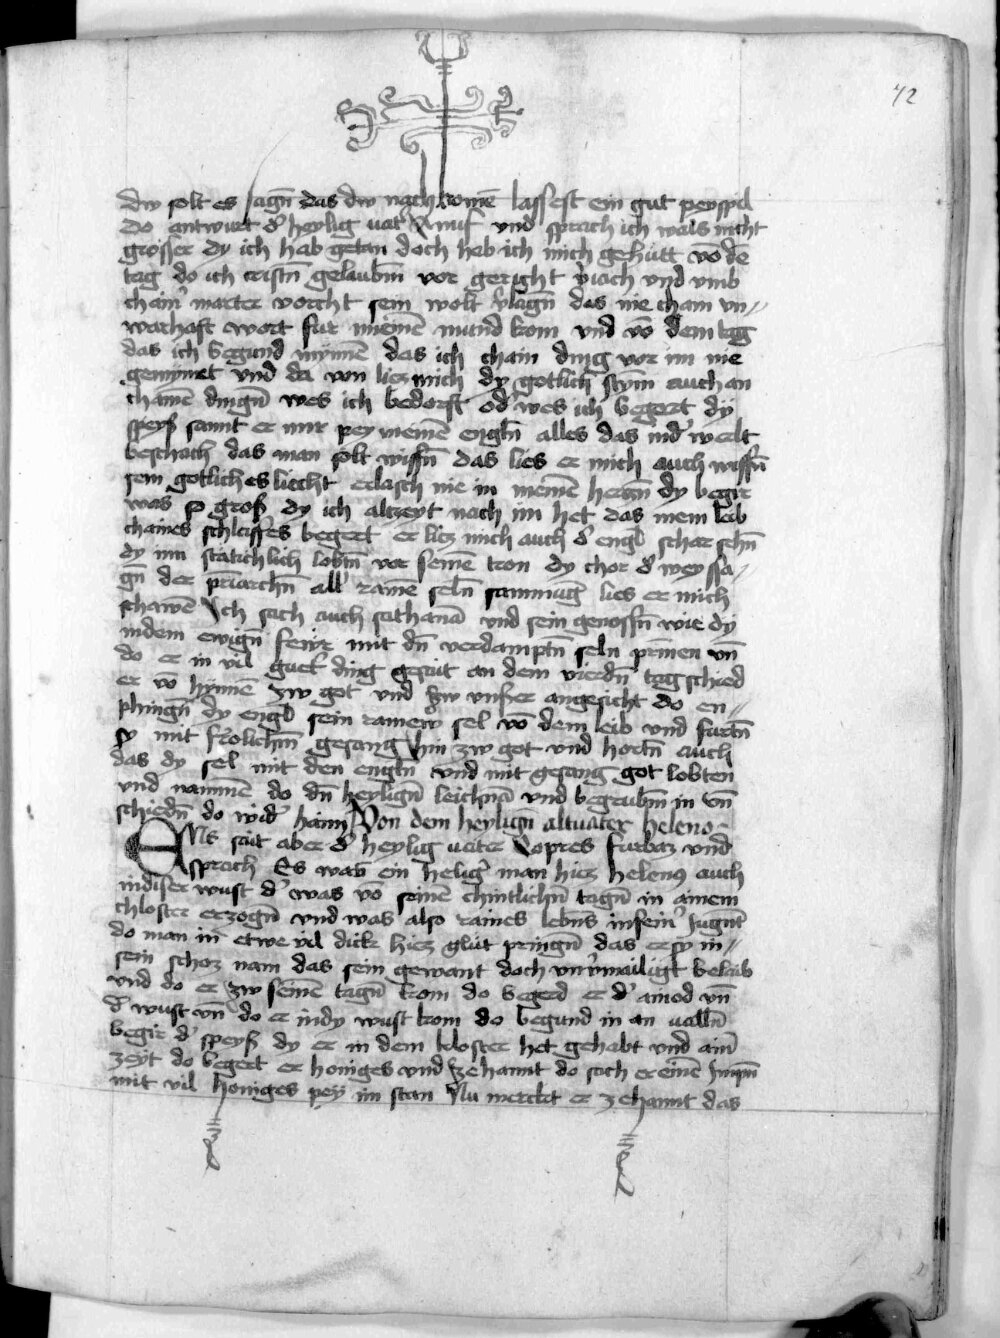 72
dw solt es sagn̄ das dw nach komē lassest ein gut peyspil
do antwurt d' heylig vat' Anuf und sprach ich wais nicht
grosser dy ich hab getan doch hab ich mich gehütt vō dē
tag do ich cristn̄ gelaubm̄ vor geright v'iach vnd vmb
chain' marter vorcht sein wolt v'lagn̄ das nie cham vn⸗
warhaft wort fur meinē mund kom vnd vō dem tag
das ich begund mynnē das ich chain ding vor im nie
gemynnet vnd da von liez mich dy gotlich stym auch an
chainē dingn̄ wes ich bedorft od' wes ich begert dy
speyß sannt er mir pey meinē engln̄ alles das in d' werlt
beschach das man solt wissn̄ das lies er mich auch wissn̄
sein gotliches liecht erlasch nie in meinē herczn̄ dy begir
was so groß dy ich alczeyt nach im het das mein leib
chaines schlaffes begert er liez mich auch d' engl schar sehn̄
dy im stätichlich lobtn̄ vor seinē tron dy chor d' weyssa⸗
gn̄ der priarchn̄ all' rainē seln̄ sammūg lies er mich
schawē Ich sach auch sathanā vnd sein genossn̄ wie dy
in dem ewign̄ fewr mit dn̄ verdamptn̄ seln prinnen vn̄
do er in vil guet' ding gesait an dem vierdn̄ tag schied
er vō hynnē zw got vnd zw vnser angesicht do en⸗
phingn̄ dy engl sein rainew sel vō dem leib vnd furtn̄
sy mit frolichm̄ gesang hin zw got vnd hortn̄ auch
das dy sel mit den engln̄ vnd mit gesang got lobten
vnd nammē do dn̄ heylign̄ leichnā vnd begrubm̄ in vn̄
schiedn̄ do wid' haim Von dem heylign̄ altvater heleno
Es sait aber d' heylig vater Copres furbaz vnd
sprach Es was ein helig' man hiez helenus auch
in diser wust d' was vō seinē chintlichn̄ tagn̄ in ainem
chloster erzogn̄ vnd was also raines lebn̄s in sein' Jugent
do man in etwe vil dick hiez glut pringn̄ das er sy in⸗
sein schoz nam das sein gewant doch vnu'mailigt belaib
vnd do er zw seinē tagn̄ kom do begerd er d' ainod vn̄
d' wust vn̄ do er in dy wust kom do begund in an valln̄
begir d' speyß dy er in dem kloster het gehabt vnd ain'
zeyt do begert er honiges vnd zehannt do sach er einē Impn̄
mit vil honiges pey im stan Nu merckt er zehannt das